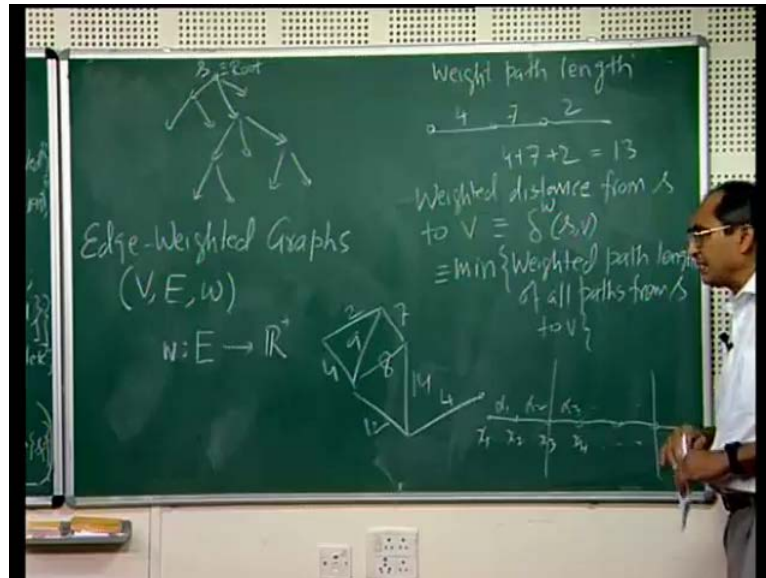 s ≡ Root
Edge-Weighted Graphs
(V, E, w)
w: E → ℝ⁺
2
7
9
4
8
14
4
12
Weight path length
4 7 2
4+7+2 = 13
Weighted distance from s
to V ≡ δʷ(s,v)
≡ min{Weighted path length
of all paths from s
to v}
α₁ α₂ α₃ . . .
x₁ x₂ x₃ x₄ . . .